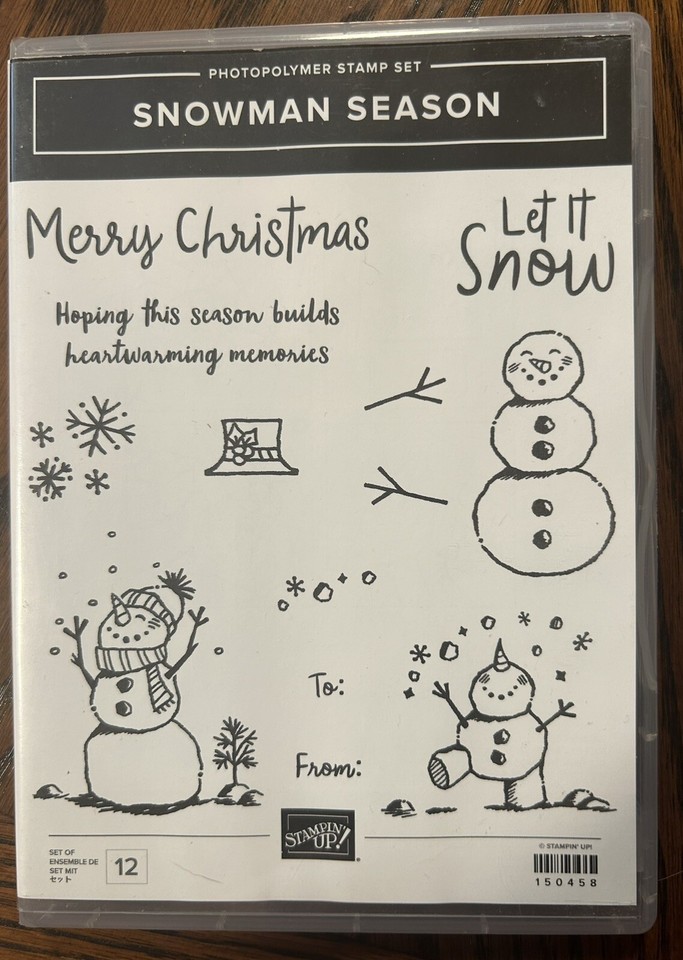 PHOTOPOLYMER STAMP SET
SNOWMAN SEASON
Merry Christmas
Let It
Snow
Hoping this season builds
heartwarming memories
To:
From:
STAMPIN'
UP!
®
SET OF
ENSEMBLE DE
SET MIT
セット
12
© STAMPIN' UP!
150458